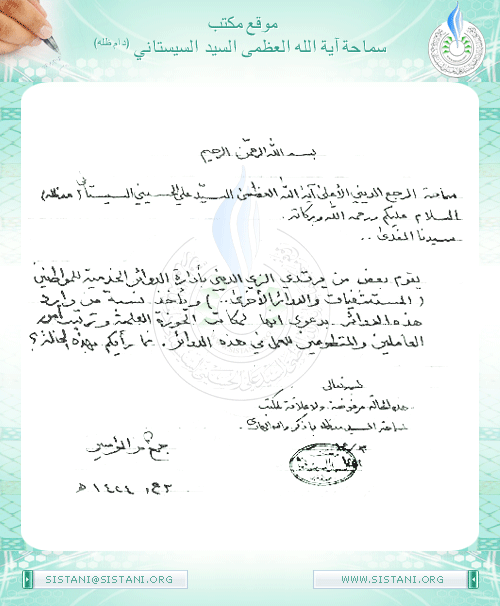 موقع مكتب
سماحة آية الله العظمى السيد السيستاني (دام ظله)
بسم الله الرحمن الرحيم
سماحة المرجع الديني الأعلى آية الله العظمى السيد علي الحسيني السيستاني (مد ظله)
السلام عليكم ورحمة الله وبركاته.
سيدنا المفدى ..
يقوم بعض من يرتدي الزي الديني بأدارة الدوائر الخدمية للمواطنين
(المستشفيات والدوائر الأخرى..) ويأخذ نسبة من وارد
هذه الدوائر بدعوى انها لمكاتب الحوزة العلمية وترتيب أمور
العاملين والمتطوعين للعمل في هذه الدوائر. فما رأيكم بهذه الحالة؟
بسمه تعالى
هذه الحالة مرفوضة ولا علاقة لمكتب
سماحة السيد مد ظله بما ذكر والله الهادي
جمع من المؤمنين
١٤٢٤ هـ
SISTANI@SISTANI.ORG
WWW.SISTANI.ORG